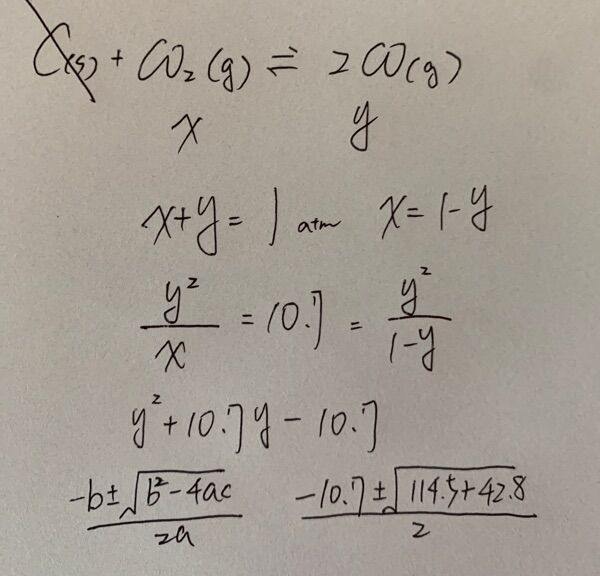 C(s) + CO₂(g) ⇌ 2CO(g)
x y
x+y = 1 atm x = 1-y
y²/x = 10.7 = y²/1-y
y²+10.7y - 10.7
-b±√b²-4ac/2a -10.7±√114.5+42.8/2